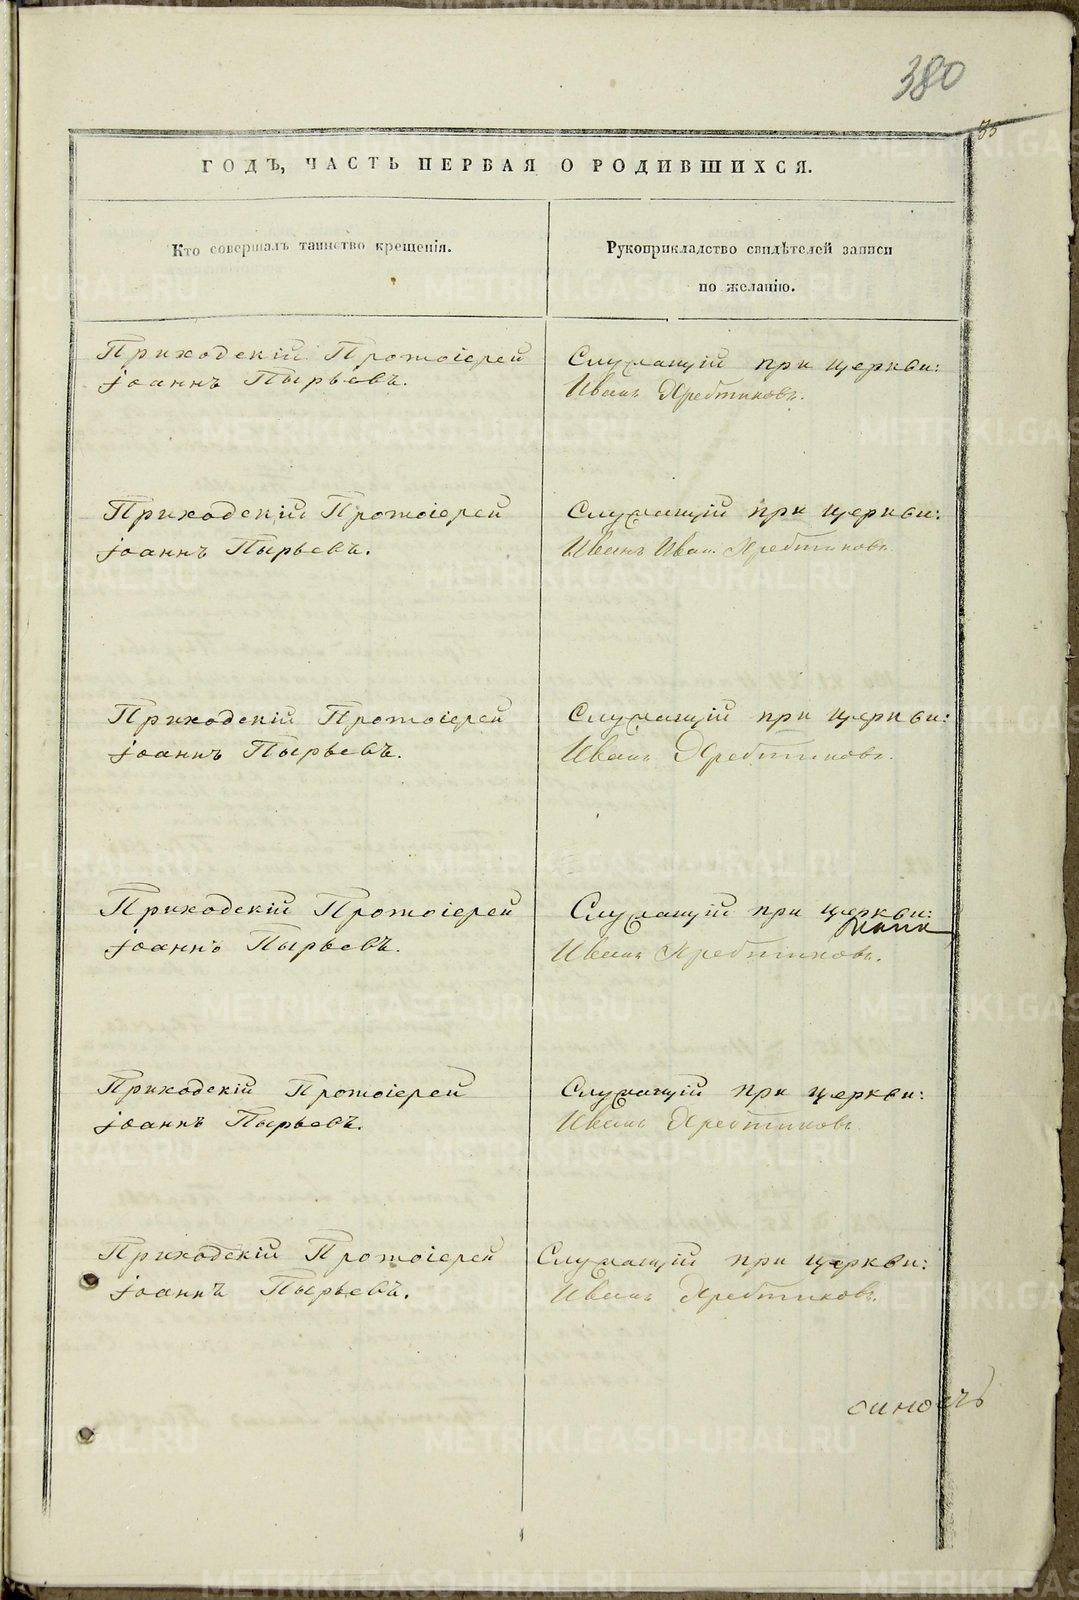 380
35
ГОДЪ, ЧАСТЬ ПЕРВАЯ О РОДИВШИХСЯ.
Кто совершалъ таинство крещенія.
Рукоприкладство свидѣтелей записи
по желанію.
Приходскій Протоіерей
Іоаннъ Пырьевъ.
Служащій при церкви:
Иванъ Хребтиковъ.
Приходскій Протоіерей
Іоаннъ Пырьевъ.
Служащій при церкви:
Иванъ Иван. Хребтиковъ
Приходскій Протоіерей
Іоаннъ Пырьевъ.
Служащій при церкви:
Иванъ Хребтиковъ.
Приходскій Протоіерей
Іоаннъ Пырьевъ.
Служащій при церкви:
Иванъ Хребтиковъ.
Приходскій Протоіерей
Іоаннъ Пырьевъ.
Служащій при церкви:
Иванъ Хребтиковъ
Приходскій Протоіерей
Іоаннъ Пырьевъ.
Служащій при церкви:
Иванъ Хребтиковъ.
METRIKI.GASO-URAL.RU